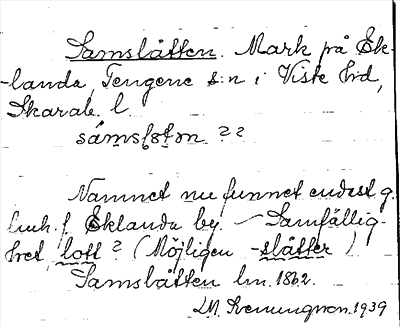 Samslåtten. Mark på Ek-
landa, Tengene s:n i Viste hrd,
Skarab. l.
sámsʃɔtən ??
Namnet nu funnet endast g.
lmh. f. Eklanda by. – Samfällig-
het, lott? (Möjligen -slåtter)
Samslåtten lm. 1862.
1939